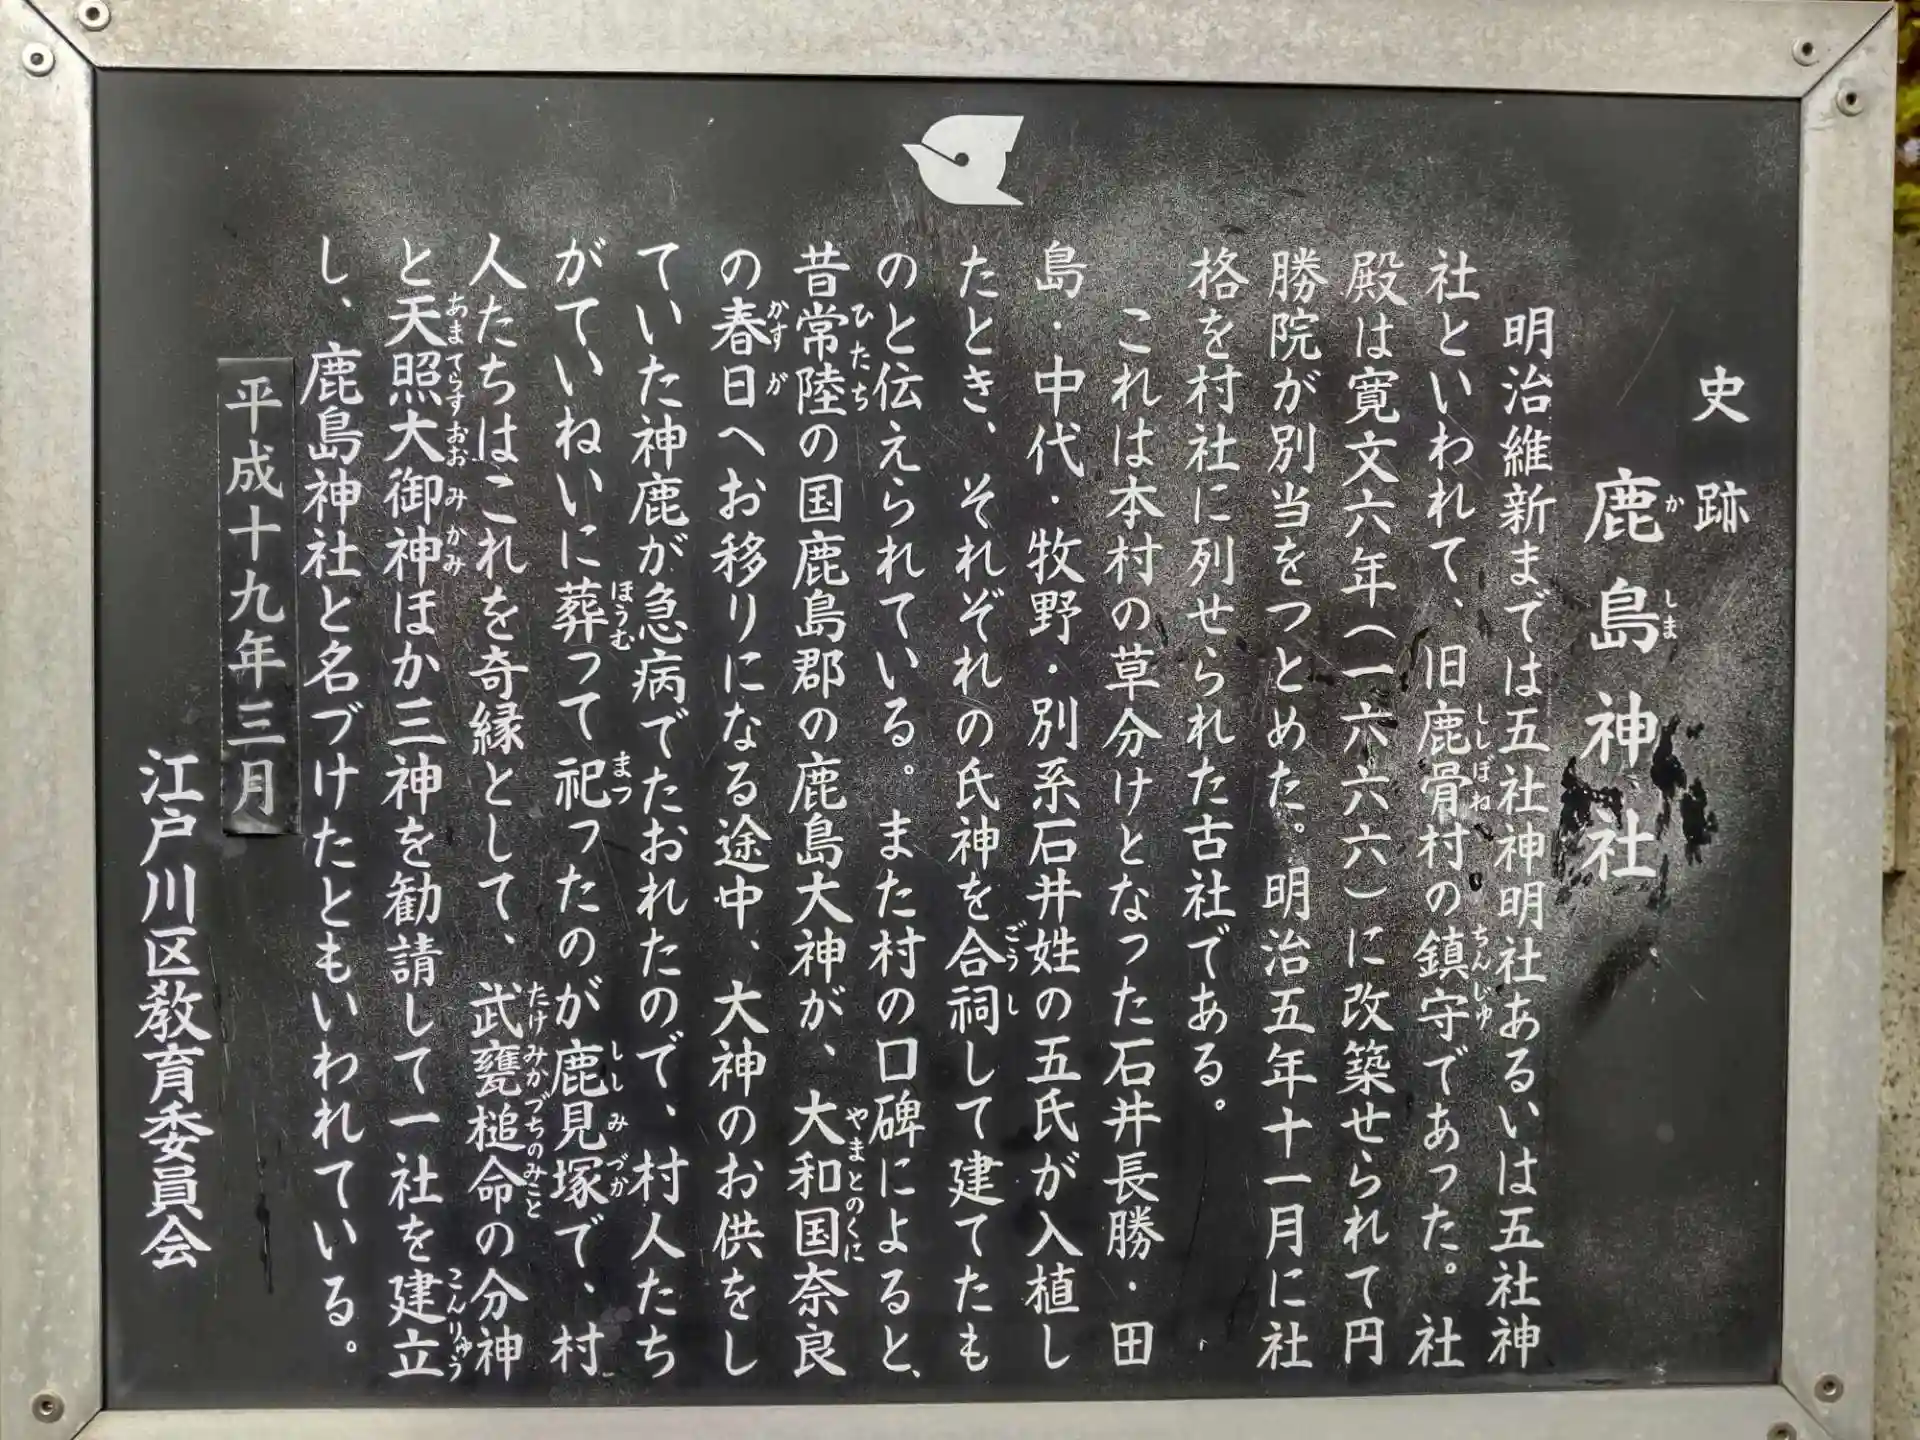 史跡
鹿島神社
明治維新までは五社神明社あるいは五社神
社といわれて、旧鹿骨村の鎮守であった。社
殿は寛文六年（一六六六）に改築せられて円
勝院が別当をつとめた。明治五年十一月に社
格を村社に列せられた古社である。
これは本村の草分けとなった石井長勝・田
島・中代・牧野・別系石井姓の五氏が入植し
たとき、それぞれの氏神を合祠して建てたも
のと伝えられている。また村の口碑によると、
昔常陸の国鹿島郡の鹿島大神が、大和国奈良
の春日へお移りになる途中、大神のお供をし
ていた神鹿が急病でたおれたので、村人たち
がていねいに葬って祀ったのが鹿見塚で、村
人たちはこれを奇縁として、武甕槌命の分神
と天照大御神ほか三神を勧請して一社を建立
し、鹿島神社と名づけたともいわれている。
平成十九年三月
江戸川区教育委員会